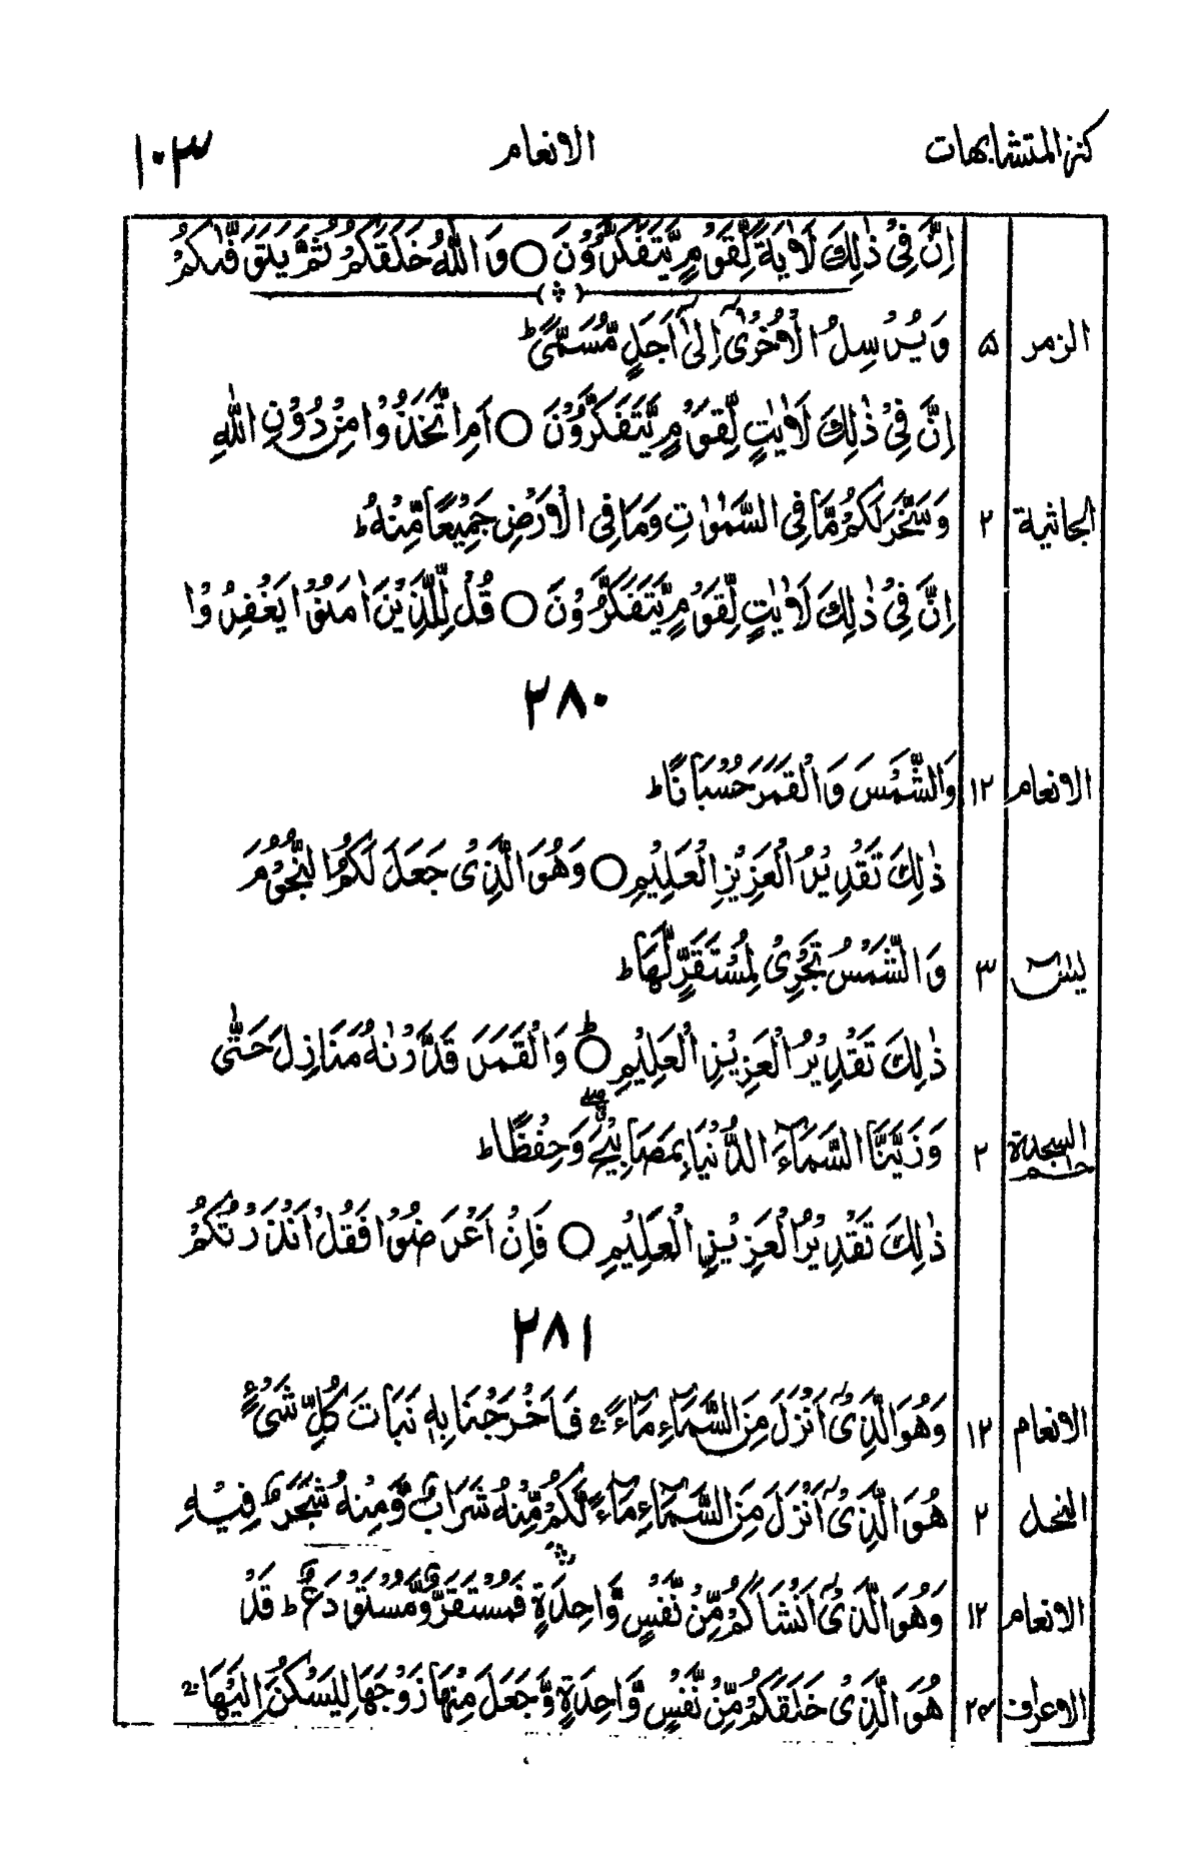 كنز المتشابهات الانعام ١٠٣
اِنَّ فِيْ ذٰلِكَ لَاٰيَةً لِّقَوْمٍ يَّتَفَكَّرُوْنَ ○ وَاللّٰهُ خَلَقَكُمْ ثُمَّ يَتَوَفّٰىكُمْ
الزمر ۵ وَيُرْسِلُ الْاُخْرٰىٓ اِلٰٓى اَجَلٍ مُّسَمًّى ؕ
اِنَّ فِيْ ذٰلِكَ لَاٰيٰتٍ لِّقَوْمٍ يَّتَفَكَّرُوْنَ ○ اَمِ اتَّخَذُوْا مِنْ دُوْنِ اللّٰهِ
الجاثية ٢ وَسَخَّرَ لَكُمْ مَّا فِي السَّمٰوٰتِ وَمَا فِي الْاَرْضِ جَمِيْعًا مِّنْهُ ؕ
اِنَّ فِيْ ذٰلِكَ لَاٰيٰتٍ لِّقَوْمٍ يَّتَفَكَّرُوْنَ ○ قُلْ لِّلَّذِيْنَ اٰمَنُوْا يَغْفِرُوْا
٢٨٠
الانعام ١٢ وَالشَّمْسَ وَالْقَمَرَ حُسْبَانًا ؕ
ذٰلِكَ تَقْدِيْرُ الْعَزِيْزِ الْعَلِيْمِ ○ وَهُوَ الَّذِيْ جَعَلَ لَكُمُ النُّجُوْمَ
يٰسٓ ٣ وَالشَّمْسُ تَجْرِيْ لِمُسْتَقَرٍّ لَّهَا ؕ
ذٰلِكَ تَقْدِيْرُ الْعَزِيْزِ الْعَلِيْمِ ○ؕ وَالْقَمَرَ قَدَّرْنٰهُ مَنَازِلَ حَتّٰى
حٰم السجدة ٢ وَزَيَّنَّا السَّمَآءَ الدُّنْيَا بِمَصَابِيْحَ ۖ وَحِفْظًا ؕ
ذٰلِكَ تَقْدِيْرُ الْعَزِيْزِ الْعَلِيْمِ ○ فَاِنْ اَعْرَضُوْا فَقُلْ اَنْذَرْتُكُمْ
٢٨١
الانعام ١٢ وَهُوَ الَّذِيْٓ اَنْزَلَ مِنَ السَّمَآءِ مَآءً ۚ فَاَخْرَجْنَا بِهٖ نَبَاتَ كُلِّ شَيْءٍ
النحل ٢ هُوَ الَّذِيْٓ اَنْزَلَ مِنَ السَّمَآءِ مَآءً لَّكُمْ مِّنْهُ شَرَابٌ وَّمِنْهُ شَجَرٌ فِيْهِ
الانعام ١٢ وَهُوَ الَّذِيْٓ اَنْشَاَكُمْ مِّنْ نَّفْسٍ وَّاحِدَةٍ فَمُسْتَقَرٌّ وَّمُسْتَوْدَعٌ ؕ قَدْ
الاعراف ٢٣ هُوَ الَّذِيْ خَلَقَكُمْ مِّنْ نَّفْسٍ وَّاحِدَةٍ وَّجَعَلَ مِنْهَا زَوْجَهَا لِيَسْكُنَ اِلَيْهَا ۚ